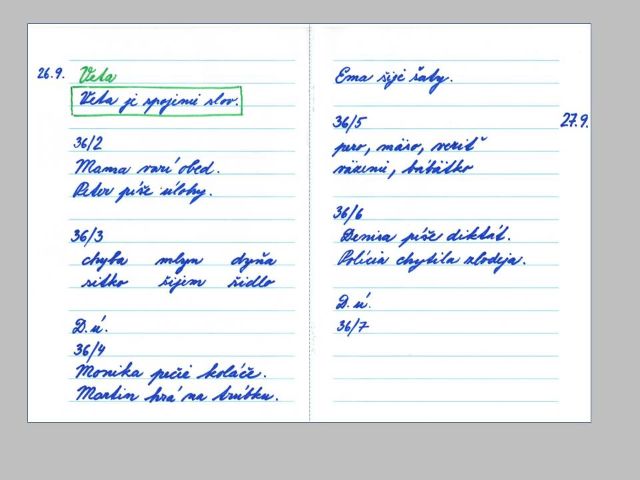 26.9. Veta
Veta je spojenie slov.
36/2
Mama varí obed.
Peter píše úlohy.
36/3
chyba mlyn dyňa
sitko šijem šidlo
D.ú.
36/4
Monika pečie koláče.
Martin hrá na trúbku.
Ema šije šaty.
36/5 27.9.
pero, mäso, veziť
väzení, bábätko
36/6
Denisa píše diktát.
Polícia chytila zlodeja.
D.ú.
36/7